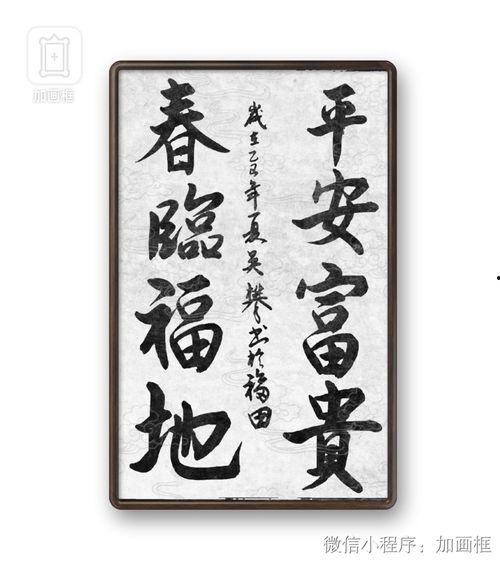 加画框
平安富貴
春臨福地
歲在乙巳年夏吴攀书於福田
微信小程序：加画框